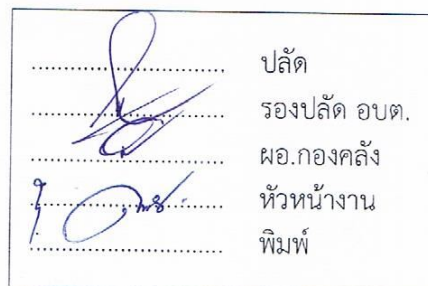 ........................ ปลัด
........................ รองปลัด อบต.
........................ ผอ.กองคลัง
........................ หัวหน้างาน
........................ พิมพ์